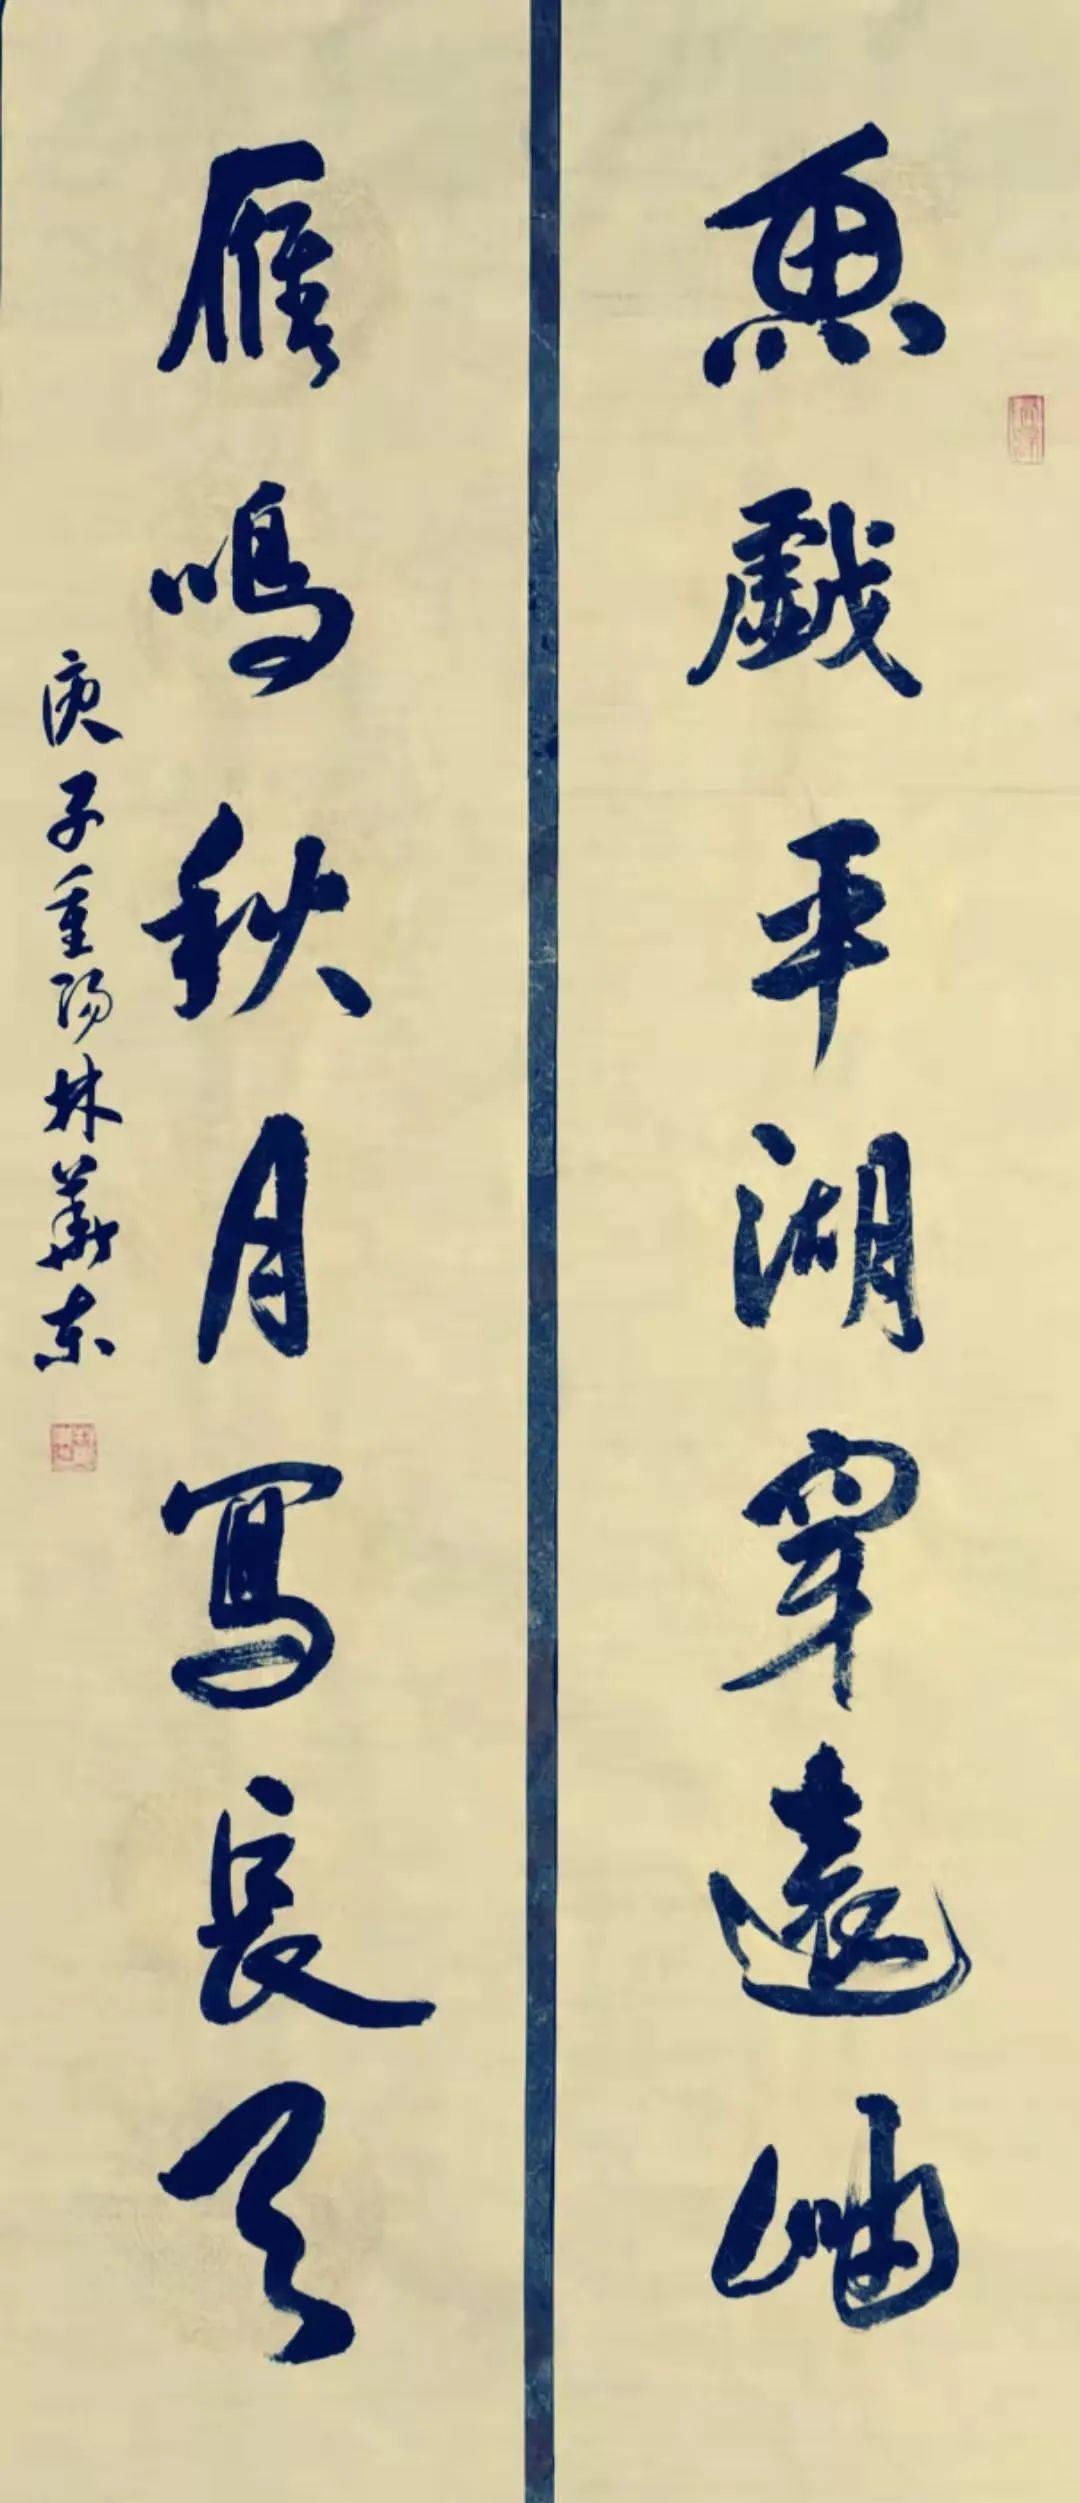 魚戲平湖穿遠岫
雁鳴秋月寫長天
庚子重陽林華東